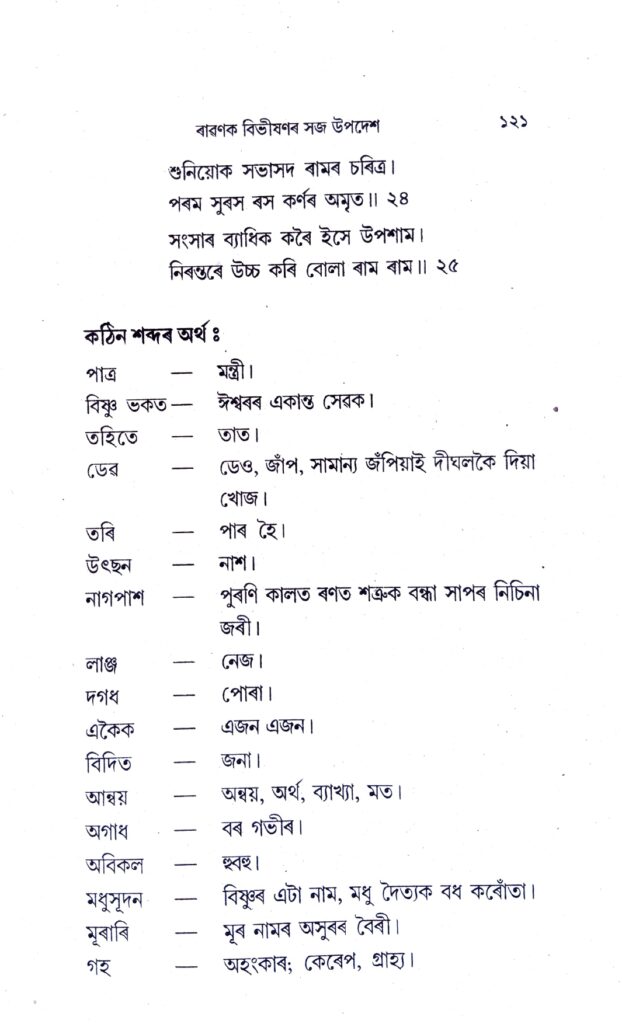 ৰাৱণক বিভীষণৰ সজ উপদেশ ১২১
শুনিয়োক সভাসদ ৰামৰ চৰিত্ৰ।
পৰম সুৰস ৰস কৰ্ণৰ অমৃত॥ ২৪
সংসাৰ ব্যাধিক কৰৈ ইসে উপশাম।
নিৰন্তৰে উচ্চ কৰি বোলা ৰাম ৰাম॥ ২৫
কঠিন শব্দৰ অৰ্থ ঃ
পাত্ৰ — মন্ত্ৰী।
বিষ্ণু ভকত — ঈশ্বৰৰ একান্ত সেৱক।
তহিতে — তাত।
ডেৱ — ডেও, জাঁপ, সামান্য জঁপিয়াই দীঘলকৈ দিয়া
খোজ।
তৰি — পাৰ হৈ।
উৎছন — নাশ।
নাগপাশ — পুৰণি কালত ৰণত শত্ৰুক বন্ধা সাপৰ নিচিনা
জৰী।
লাঞ্জ — নেজ।
দগধ — পোৰা।
একৈক — এজন এজন।
বিদিত — জনা।
আন্বয় — অন্বয়, অৰ্থ, ব্যাখ্যা, মত।
অগাধ — বৰ গভীৰ।
অবিকল — হুবহু।
মধুসূদন — বিষ্ণুৰ এটা নাম, মধু দৈত্যক বধ কৰোঁতা।
মূৰাৰি — মূৰ নামৰ অসুৰৰ বৈৰী।
গহ — অহংকাৰ; কেৰেপ, গ্ৰাহ্য।